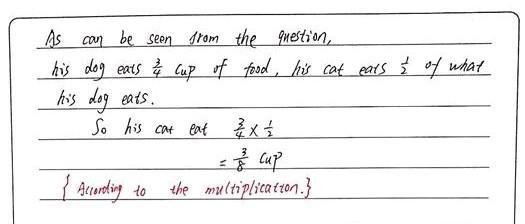 As can be seen from the question,
his dog eats 3/4 cup of food, his cat eats 1/2 of what
his dog eats.
So his cat eat 3/4 × 1/2
= 3/8 cup
{ According to the multiplication.}